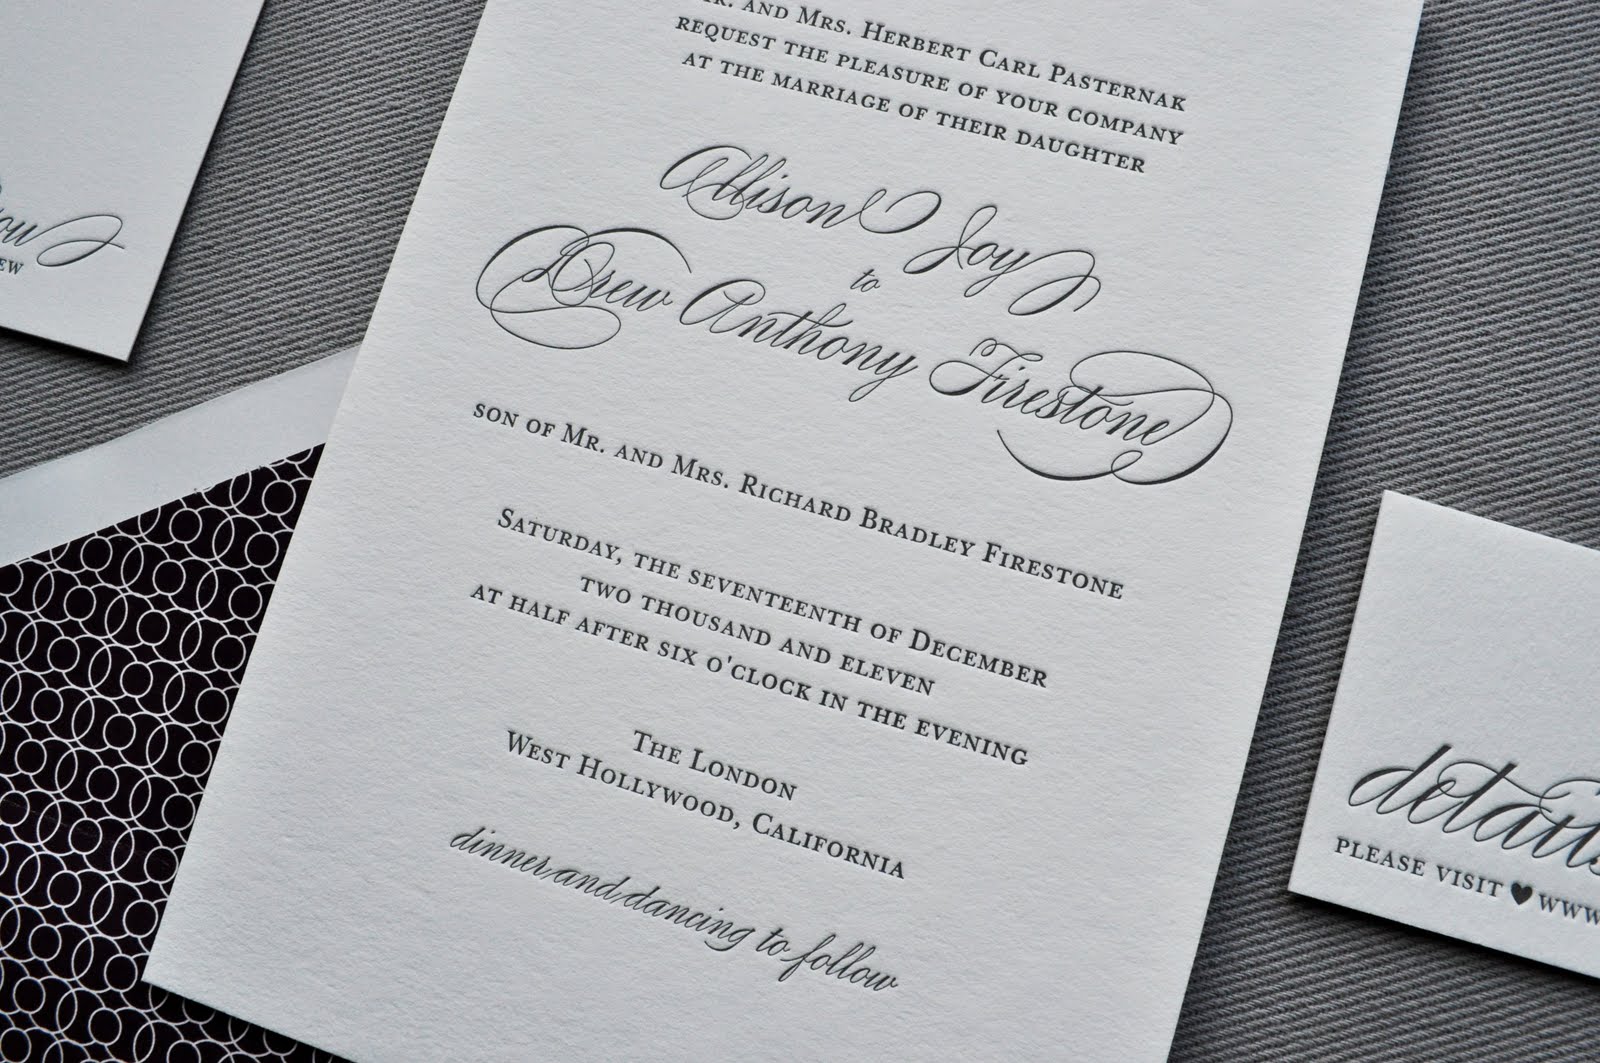 and Mrs. Herbert Carl Pasternak
request the pleasure of your company
at the marriage of their daughter
Allison Joy
to
Drew Anthony Firestone
son of Mr. and Mrs. Richard Bradley Firestone
Saturday, the seventeenth of December
two thousand and eleven
at half after six o'clock in the evening
The London
West Hollywood, California
dinner and dancing to follow
details
please visit ♥ www